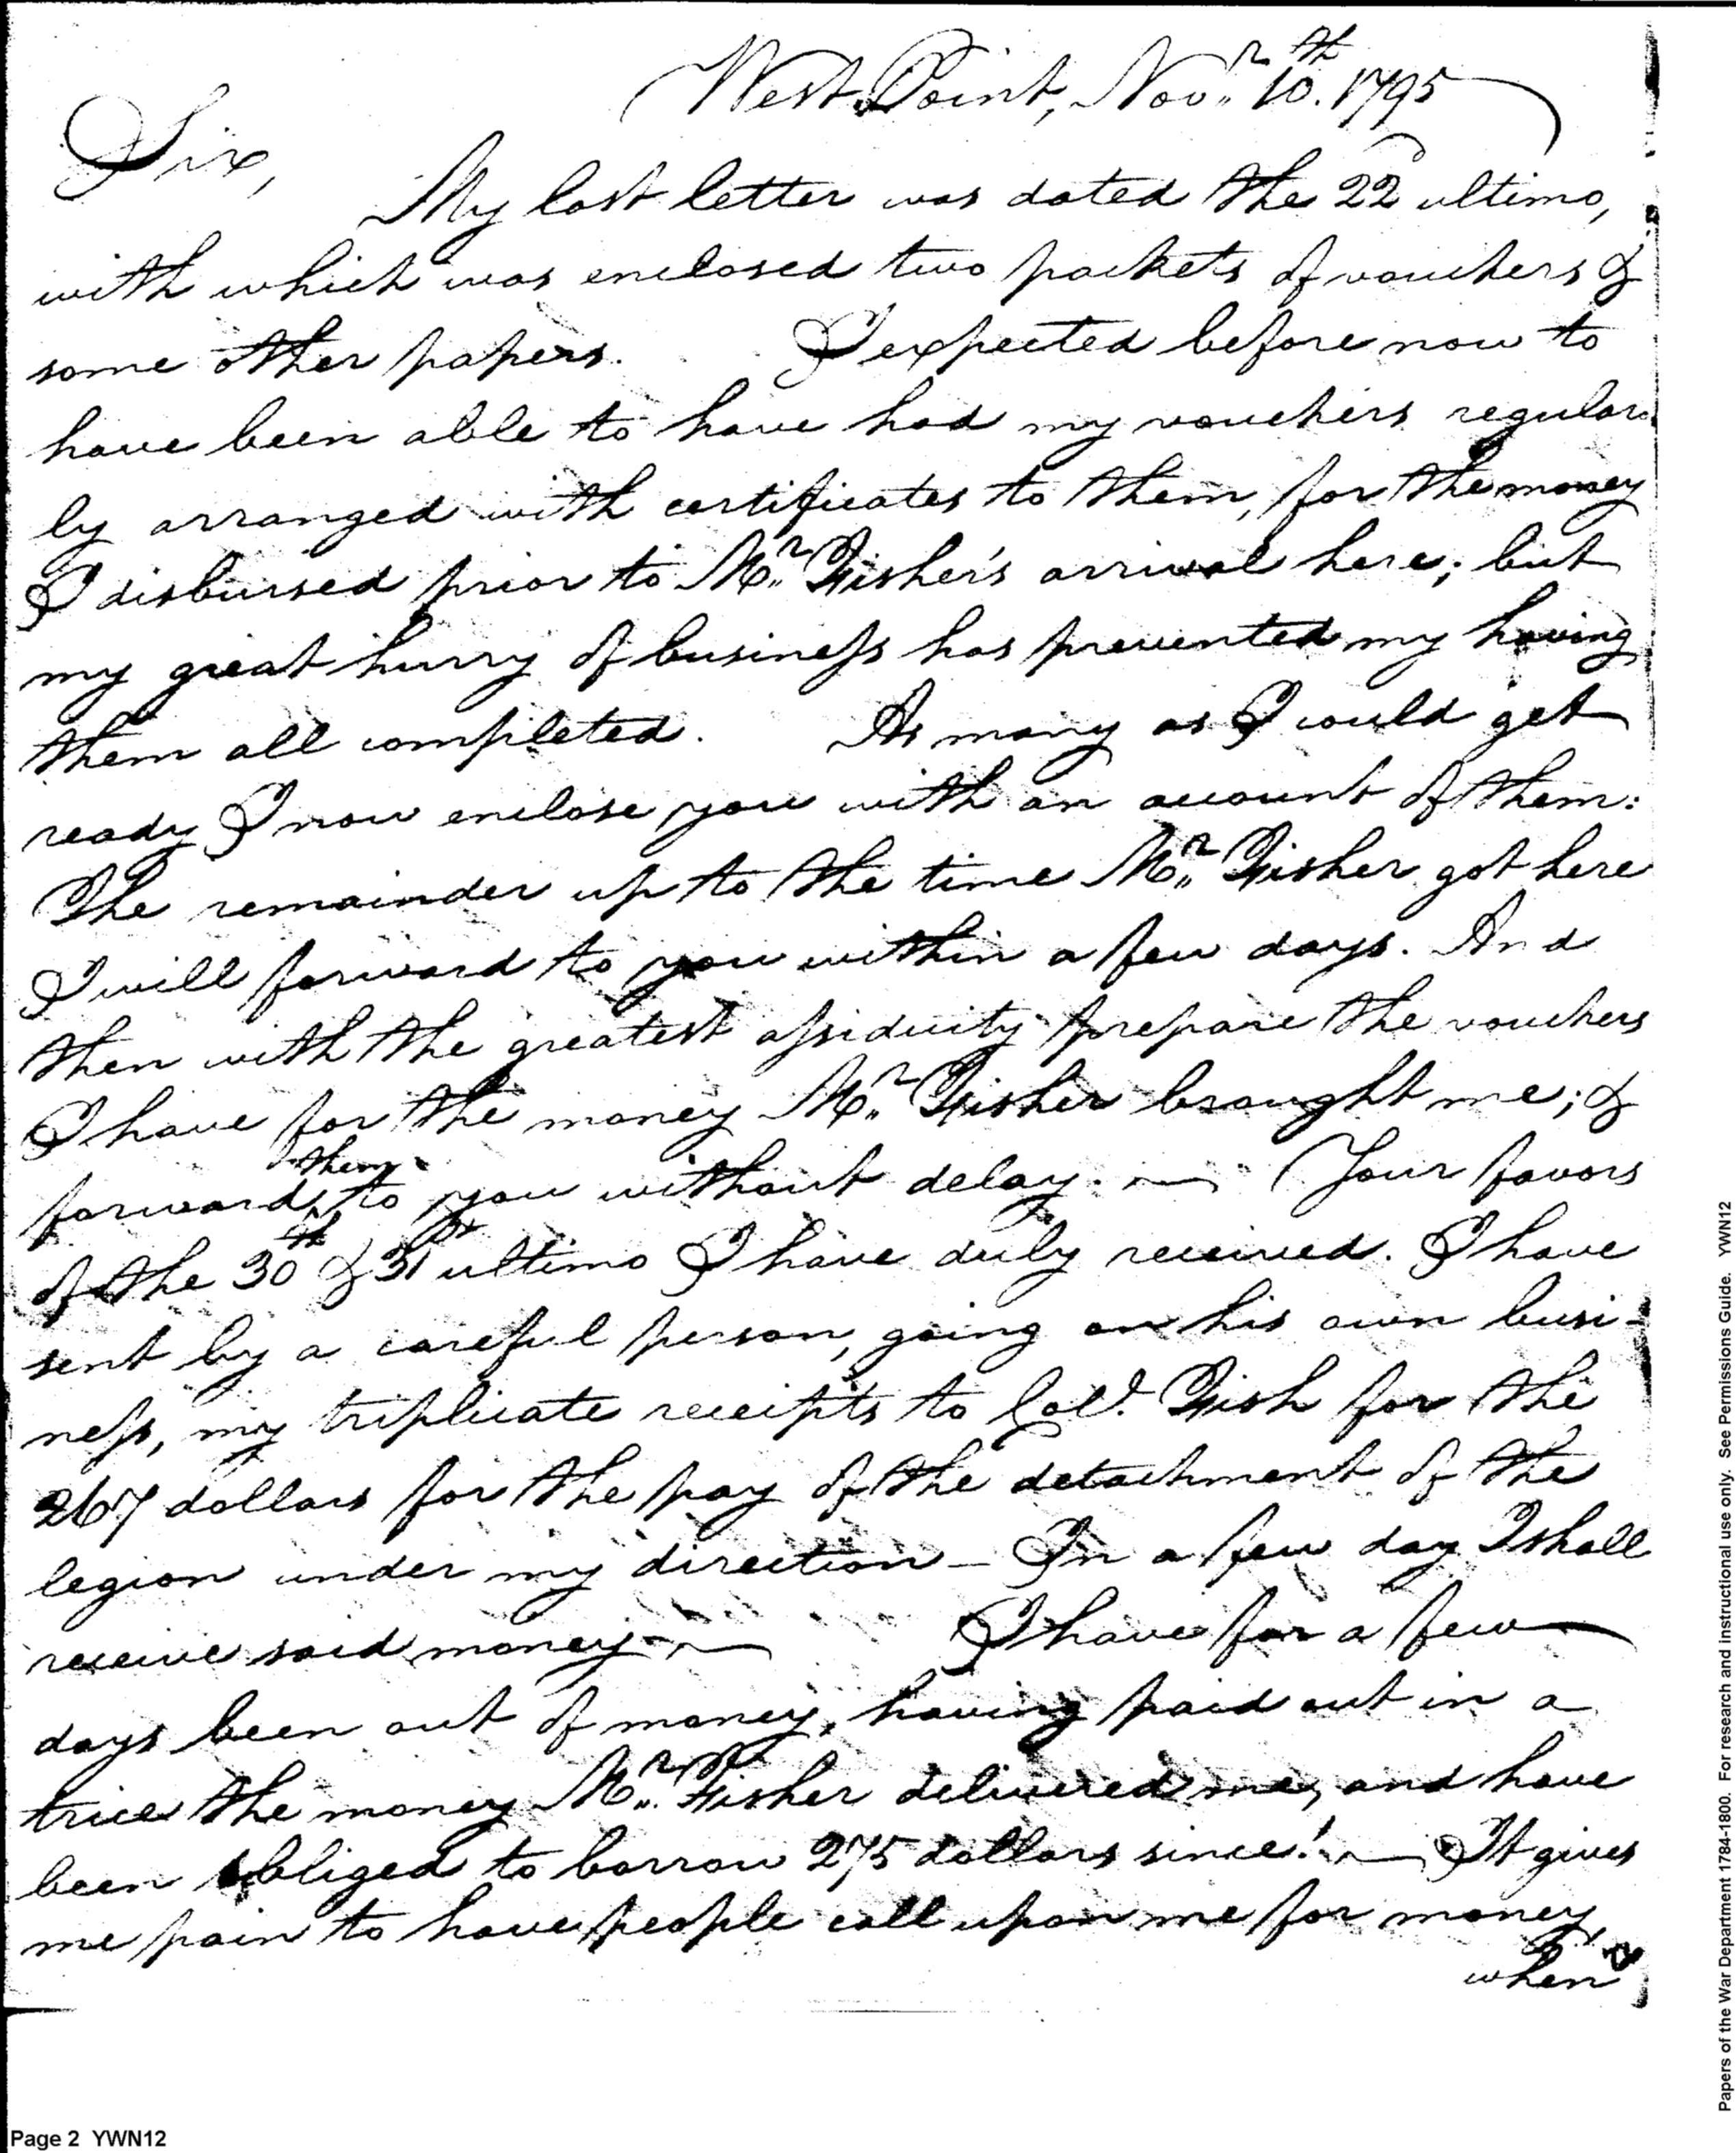 West Point, Novr. 10th. 1795
Sir,
My last letter was dated the 22d ultimo,
with which was enclosed two packets of vouchers &
some other papers. I expected before now to
have been able to have had my vouchers regular
ly arranged with certificates to them, for the money
I disbursed prior to Mr. Fisher's arrival here; but
my great hurry of business has prevented my having
them all completed. As many as I could get
ready I now enclose you with an account of them:
The remainder up to the time Mr. Fisher got here
I will forward to you within a few days. And
then with the greatest assiduity prepare the vouchers
I have for the money Mr. Fisher brought me; &
them
forward, to you without delay. — Your favors
of the 30th & 31st ultimo I have duly received. I have
sent by a careful person, going on his own busi-
ness, my triplicate receipts to Col. Fish for the
267 dollars for the pay of the detachment of the
legion under my direction — In a few day I shall
receive said money — I have for a few
days been out of money, having paid out in a
trice the money Mr. Fisher delivered me, and have
been obliged to borrow 275 dollars since! — It gives
me pain to have people call upon me for money,
when
Page 2 YWN12
Papers of the War Department 1784-1800. For research and instructional use only. See Permissions Guide. YWN12